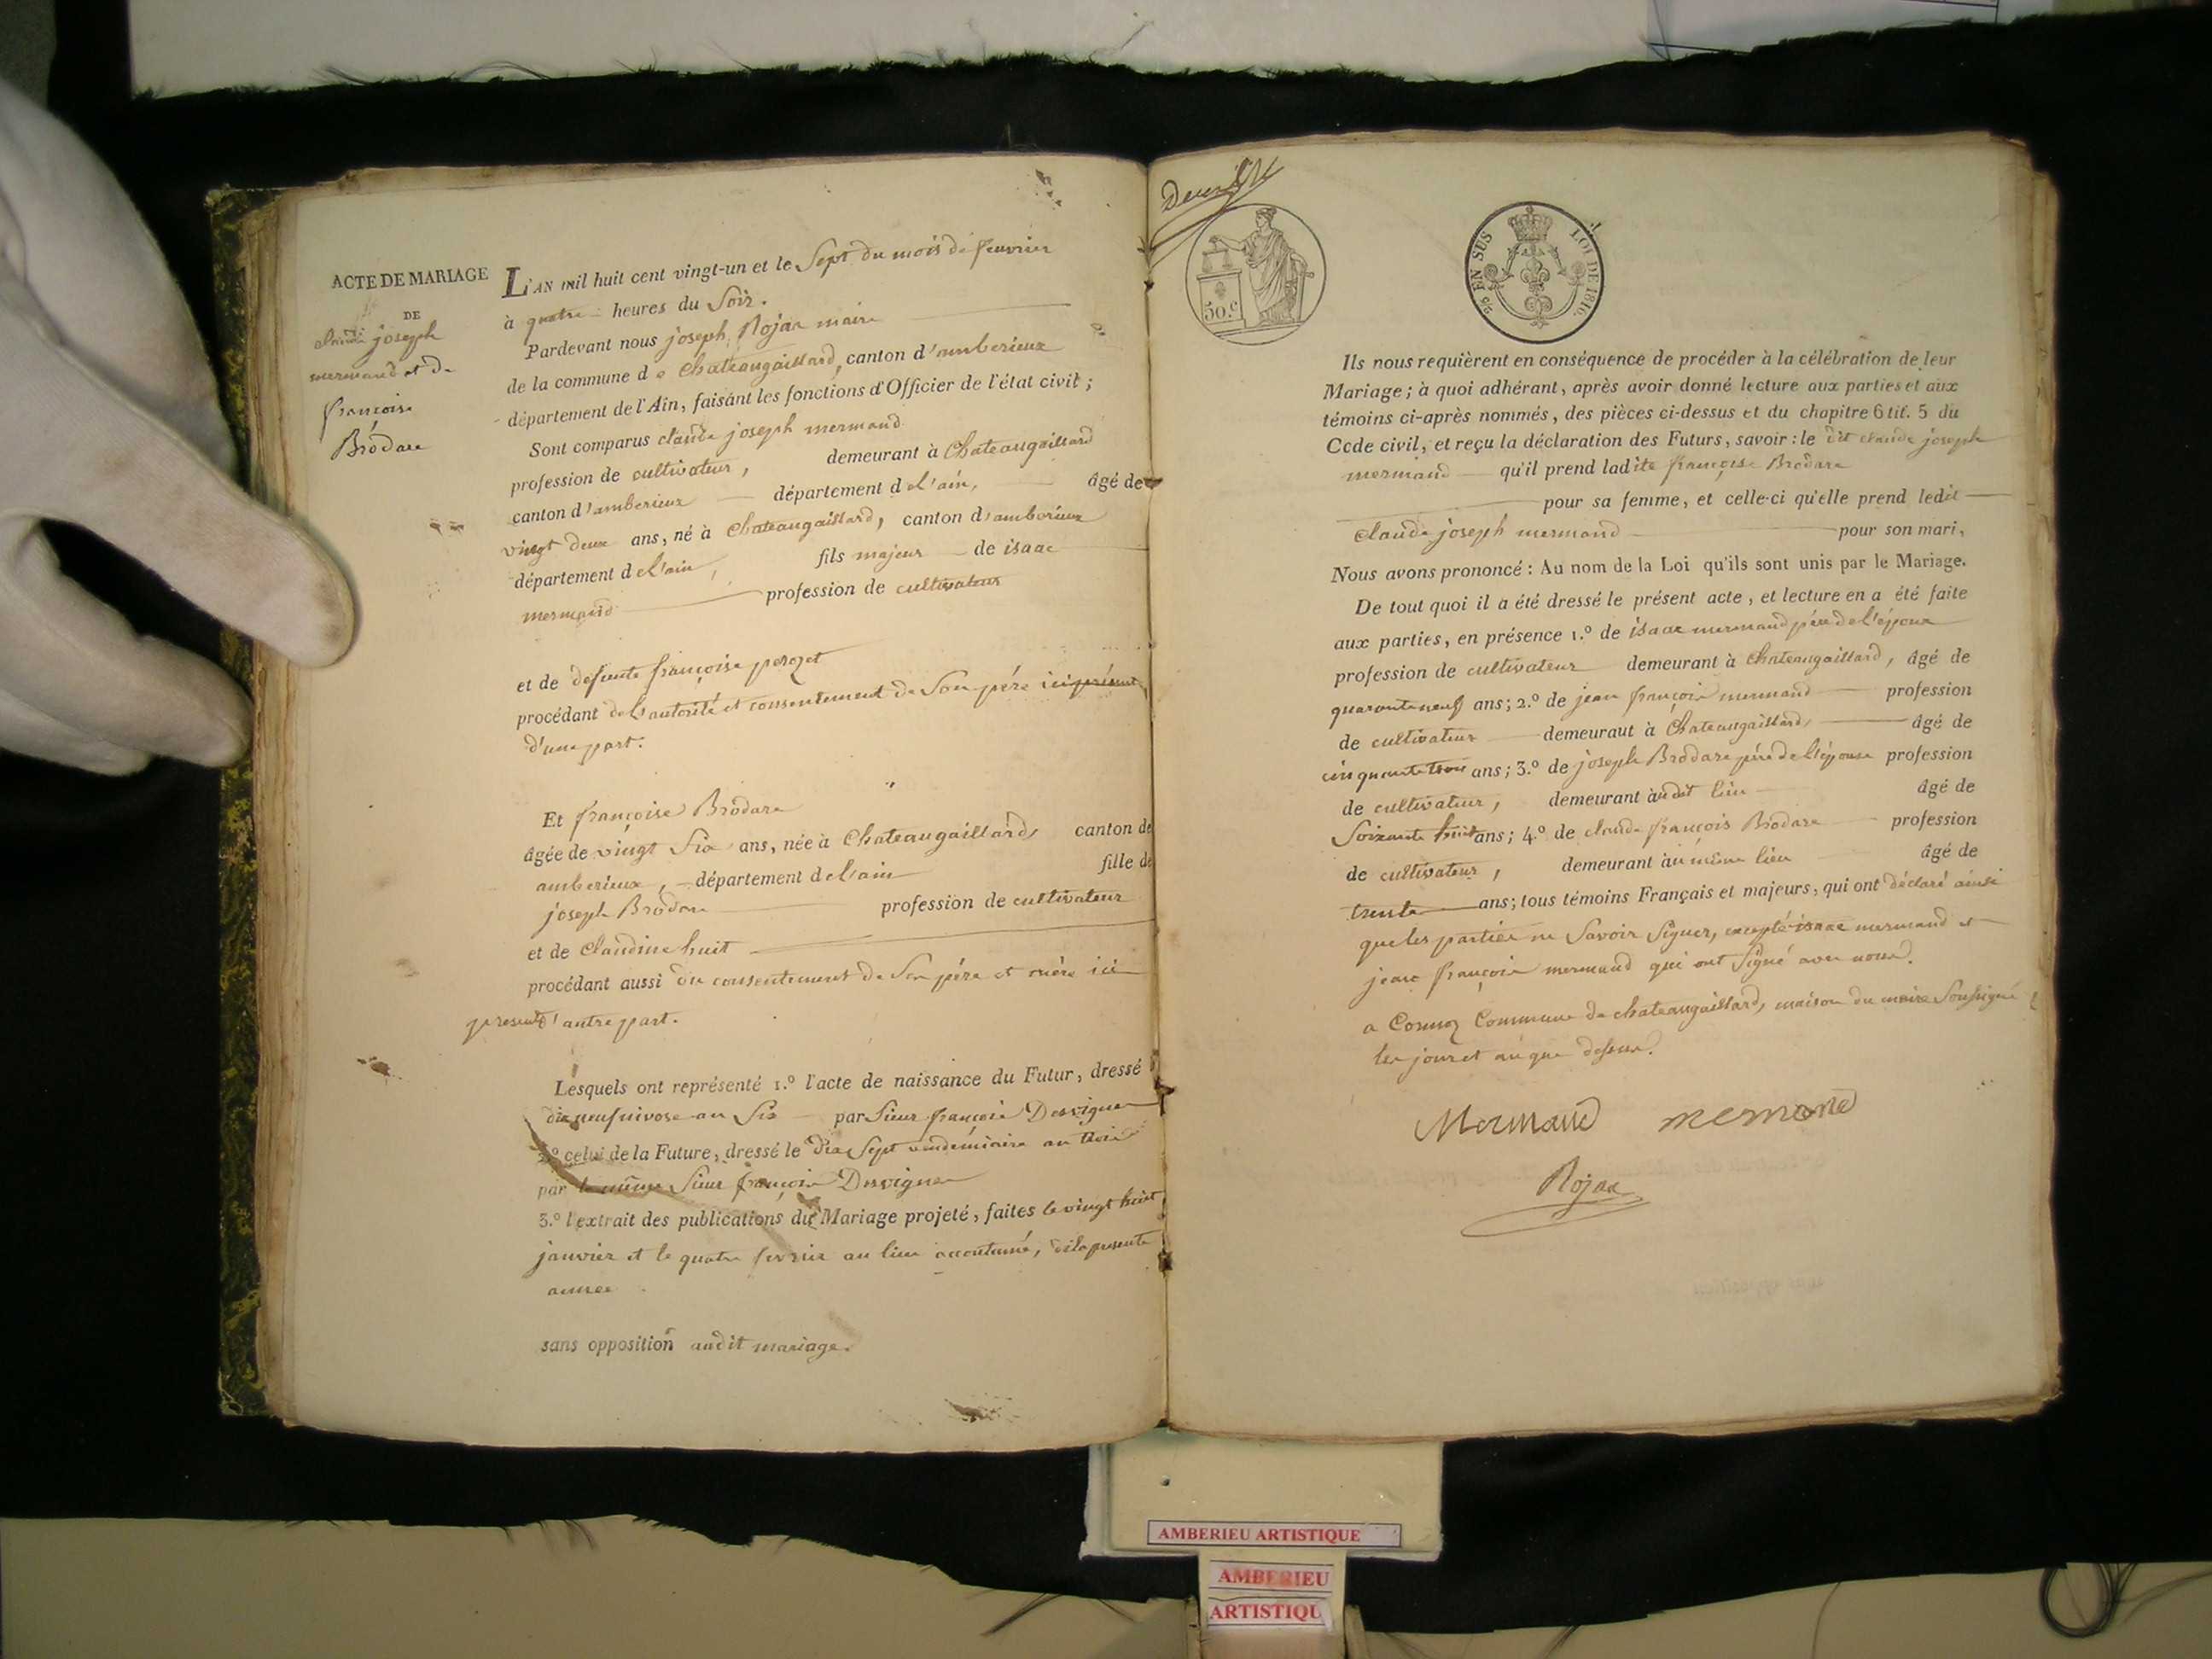 ACTE DE MARIAGE
DE
claude joseph
mermand et de
françoise
Brodare
L'AN mil huit cent vingt-un et le Sept du mois de fevrier
à quatre heures du Soir.
Pardevant nous joseph Rojat maire
de la commune de Chateaugaillard, canton d'amberieux
département de l'Ain, faisant les fonctions d'Officier de l'état civil ;
Sont comparus claude joseph mermand
profession de cultivateur, demeurant à Chateaugaillard
canton d'amberieux département de l'ain, âgé de
vingt deux ans, né à Chateaugaillard, canton d'amberieux
département de l'ain, fils majeur de isaac
mermand profession de cultivateur
et de defunte françoise
procédant de l'autorité et consentement de Son père ici présent
d'une part.
Et françoise Brodare
âgée de vingt Six ans, née à Chateaugaillard, canton de
amberieux, département de l'ain fille de
joseph Brodare profession de cultivateur
et de Claudine huit
procédant aussi du consentement de Ses père et mère ici
presents d'autre part.
Lesquels ont représenté 1.º l'acte de naissance du Futur, dressé
dix neuf nivose an Six par Sieur françois Desvignes
2.º celui de la Future, dressé le dix Sept vendemiaire an trois
par le même Sieur françois Desvignes
3.º l'extrait des publications du Mariage projeté, faites le vingt huit
janvier et le quatre fevrier au lieu accoutumé, de la presente
année
sans opposition audit mariage.
50.C
EN SUS LOI DE 1816.
Ils nous requièrent en conséquence de procéder à la célébration de leur
Mariage ; à quoi adhérant, après avoir donné lecture aux parties et aux
témoins ci-après nommés, des pièces ci-dessus et du chapitre 6 tit. 5 du
Code civil, et reçu la déclaration des Futurs, savoir : le dit claude joseph
mermand qu'il prend ladite françoise Brodare
pour sa femme, et celle-ci qu'elle prend ledit
claude joseph mermand pour son mari,
Nous avons prononcé : Au nom de la Loi qu'ils sont unis par le Mariage.
De tout quoi il a été dressé le présent acte, et lecture en a été faite
aux parties, en présence 1.º de isaac mermand père de l'époux
profession de cultivateur demeurant à Chateaugaillard, âgé de
quarante neuf ans ; 2.º de jean françois mermand profession
de cultivateur demeuraut à Chateaugaillard, âgé de
cinquante trois ans ; 3.º de joseph Brodare père de l'épouse profession
de cultivateur, demeurant audit lieu âgé de
Soixante huit ans ; 4.º de claude françois Brodare profession
de cultivateur, demeurant au même lieu âgé de
trente ans ; tous témoins Français et majeurs, qui ont déclaré ainsi
que les parties ne Savoir Signer, excepté isaac mermand et
jean françois mermand qui ont Signé avec nous.
a Commune de chateaugaillard, maison du maire Soussigné
les jour et an que dessus.
Mermand mermand
Rojat
AMBERIEU ARTISTIQUE
AMBERIEU
ARTISTIQU